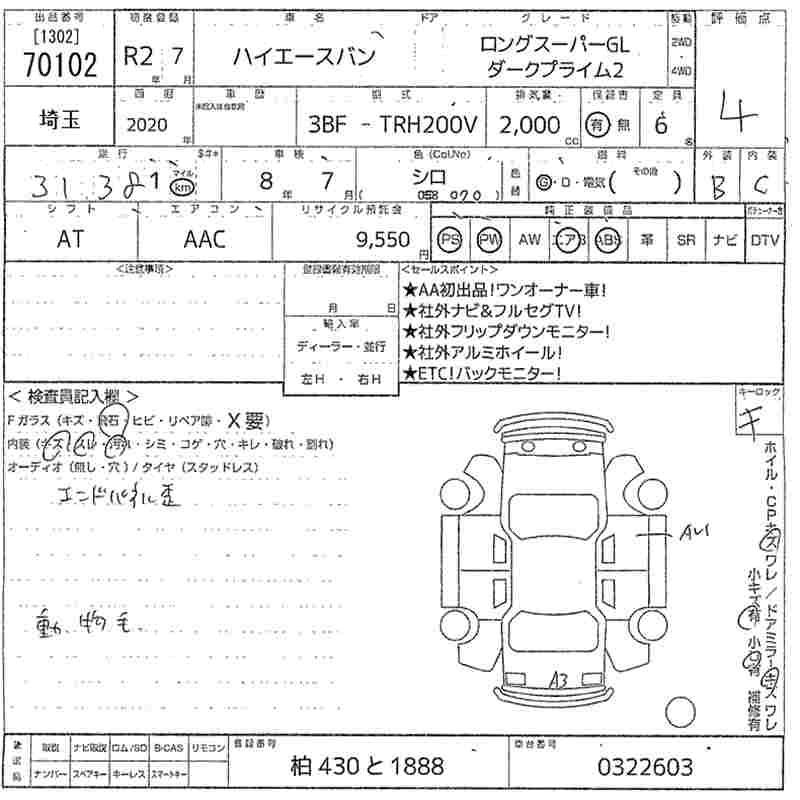 出品番号 初度登録 車名 ドア グレード 駆動 評価点
[1302]
70102 R2年 7月 ハイエースバン ロングスーパーGL ダークプライム2 2WD 4WD 4
埼玉 西暦 車歴 型式 排気量 保証書 定員
2020年 3BF - TRH200V 2,000cc 有 無 6名
走行 車検 色(Col.No) 燃料 外装 内装
31,381 マイル km 8年 7月 シロ 色替 G・D・電気( その他 ) B C
(058 070)
シフト エアコン リサイクル預託金 純正装備品
AT AAC 9,550円 PS PW AW エアB ABS 革 SR ナビ DTV
<注意事項> <セールスポイント>
月 日
輸入車
ディーラー・並行
左H ・ 右H
★AA初出品!ワンオーナー車!
★社外ナビ&フルセグTV!
★社外フリップダウンモニター!
★社外アルミホイール!
★ETC!バックモニター!
< 検査員記入欄 > キーロック
Fガラス (キズ・飛石・ヒビ・リペア跡・X要) キ
内装 (キズ・スレ・汚れ・シミ・コゲ・穴・キレ・破れ・割れ)
オーディオ (無し・穴) / タイヤ (スタッドレス)
エンドパネル歪
動物毛
AU1
A3
ホイル・CPキズワレ/ドアミラーキズワレ
小キズ有 小凹有 補修有
後送品 取説 ナビ取説 ロム/SD B-CAS リモコン 登録番号 車台番号
ナンバー スペアキー キーレス スマートキー 柏 430 と 1888 0322603